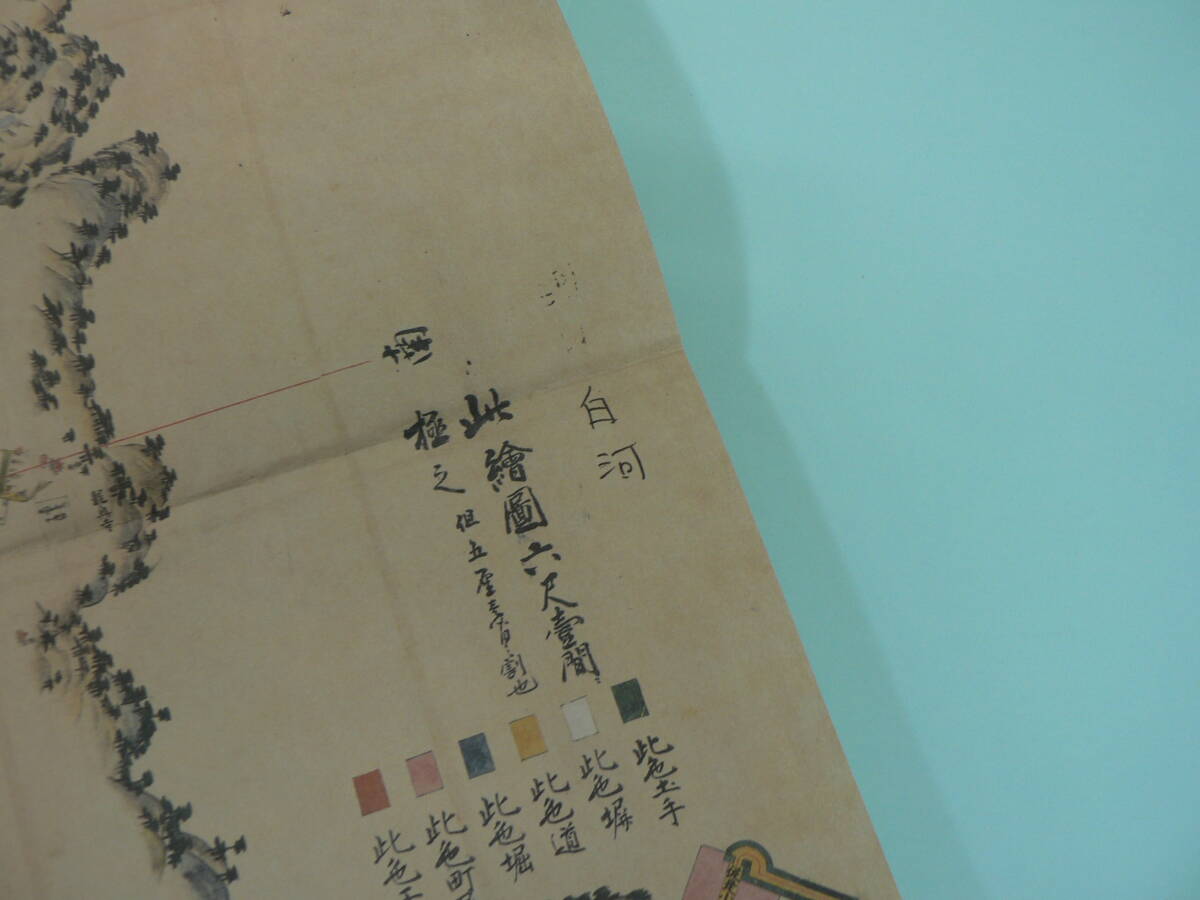 白河
此繪圖六尺壹間ニ
極之 但五厘壹間割也
南
此色土手
此色塀
此色道
此色堀
此色町
此色